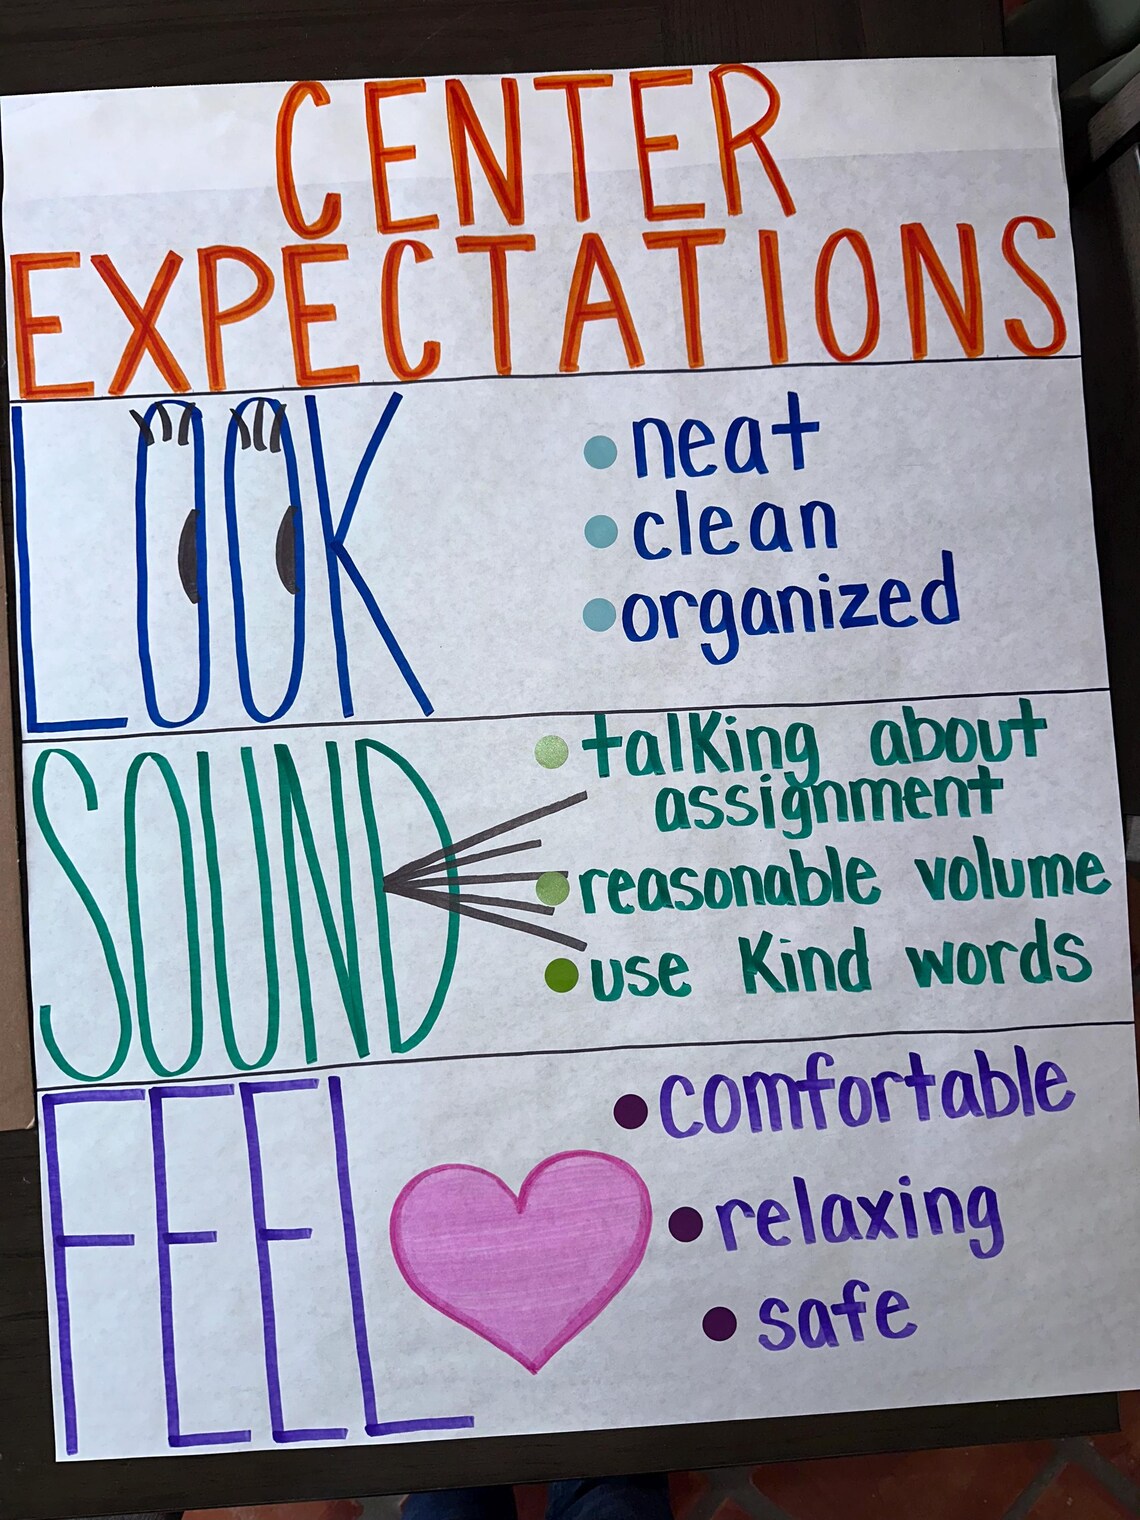 CENTER
EXPECTATIONS
LOOK
• neat
• clean
• organized
SOUND
• talking about
assignment
• reasonable volume
• use kind words
FEEL
• comfortable
• relaxing
• safe